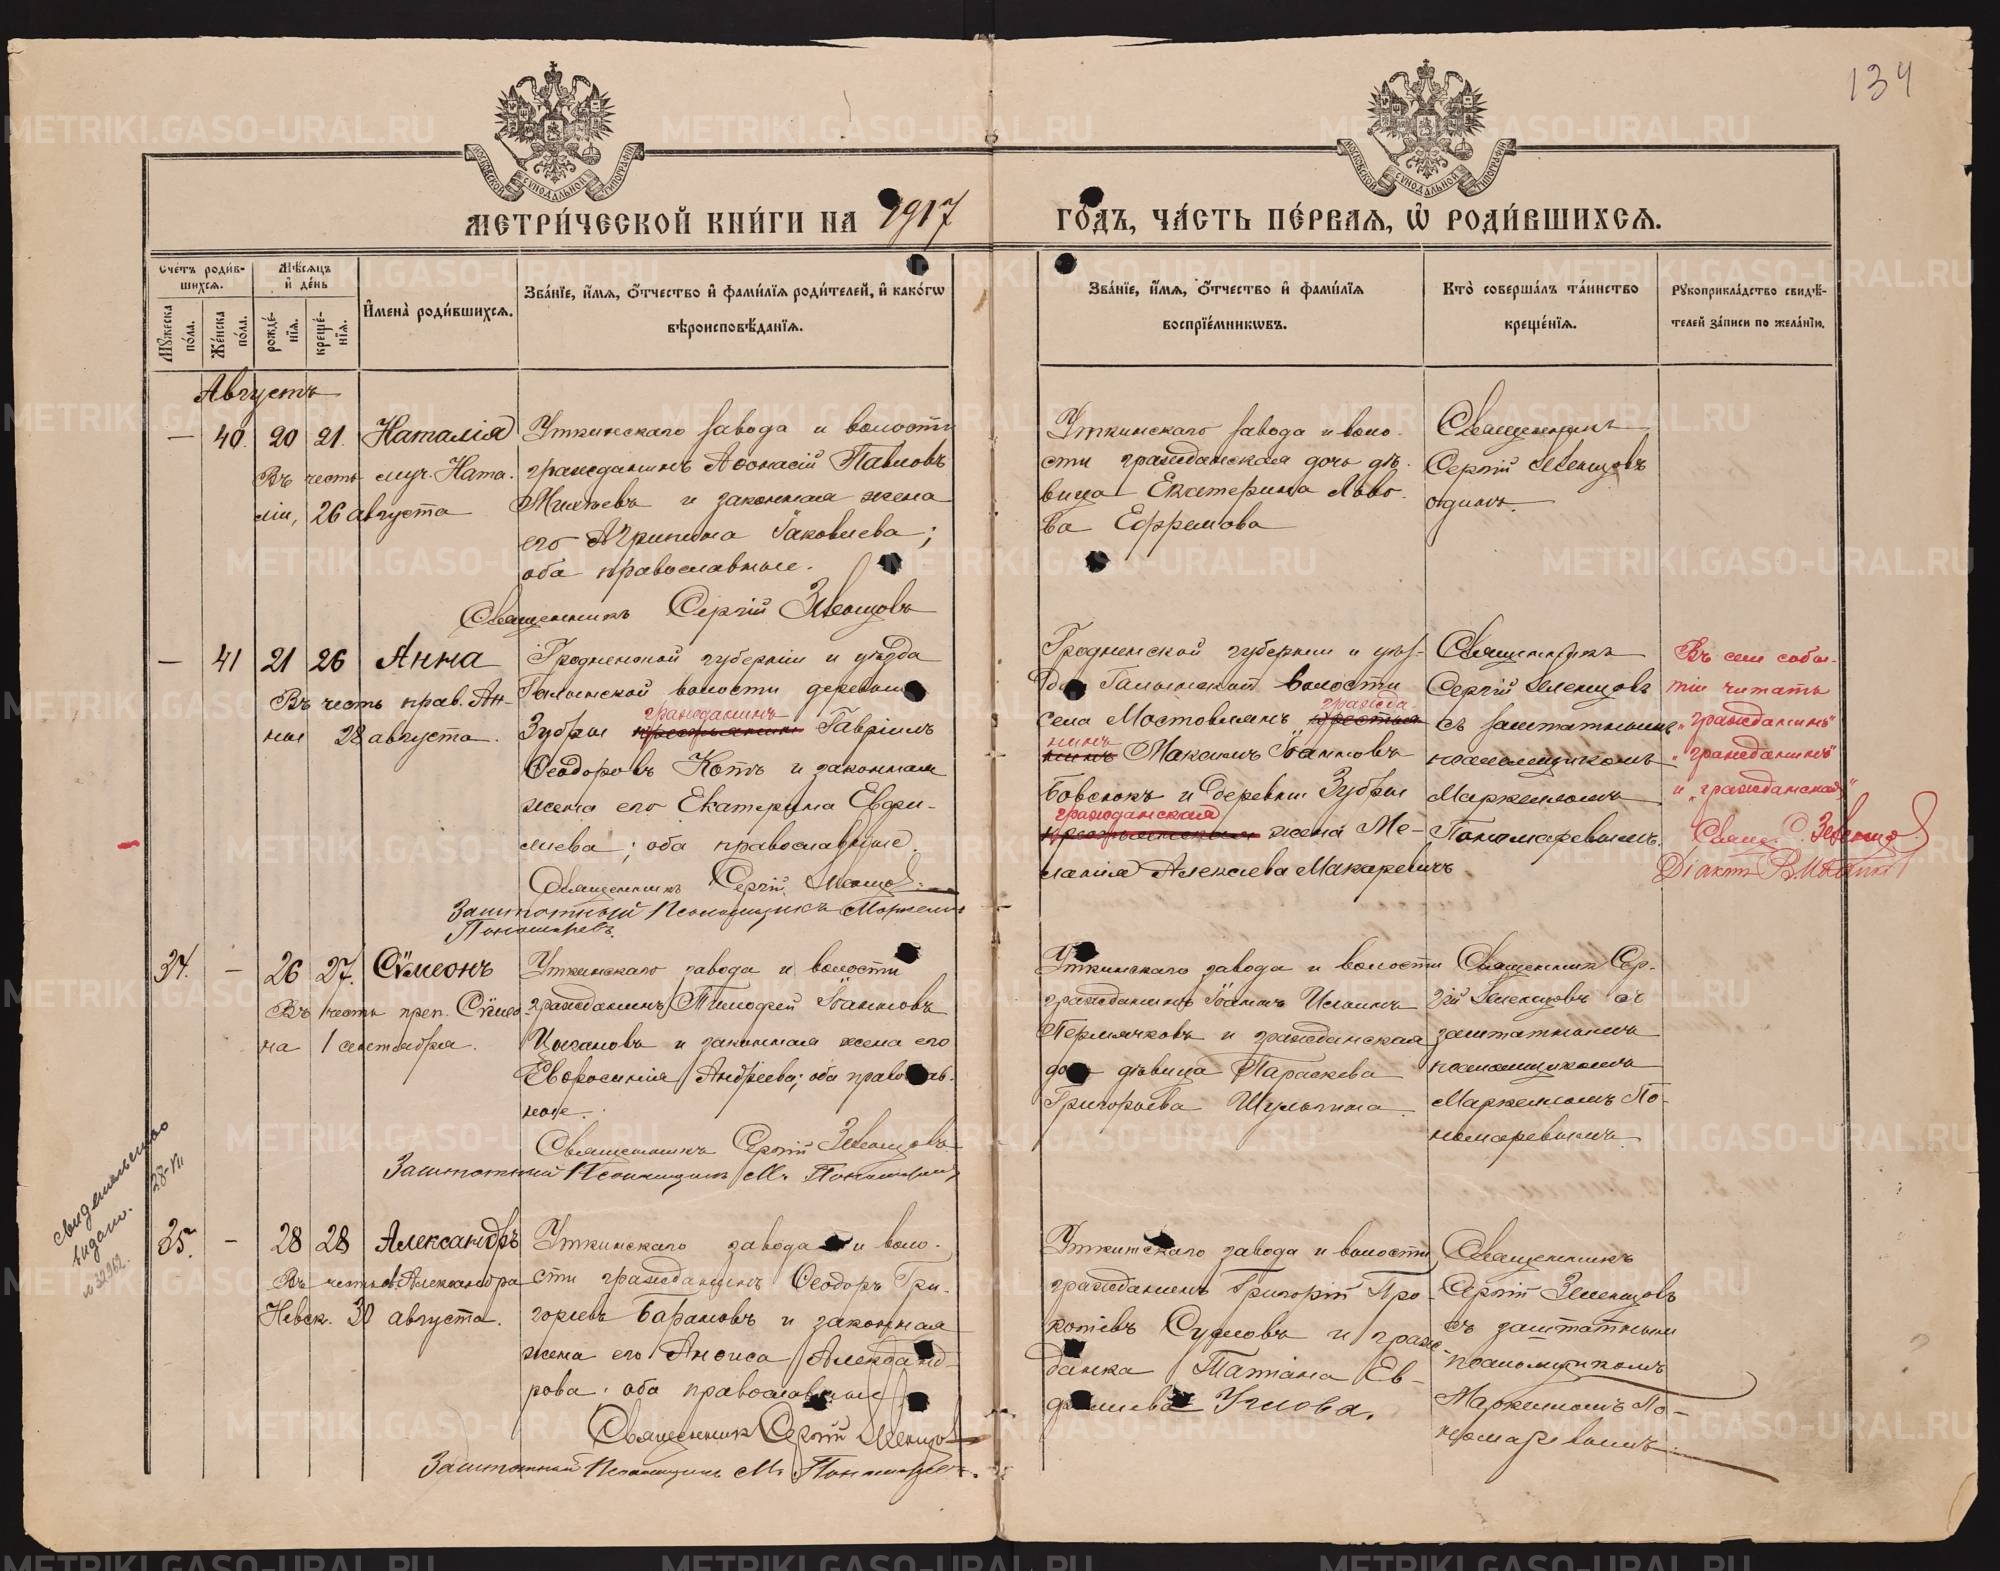 134
МОСКОВСКОЙ СѴНОДАЛЬНОЙ ТИПОГРАФІИ
МОСКОВСКОЙ СѴНОДАЛЬНОЙ ТИПОГРАФІИ
МЕТРИ́ЧЕСКОЙ КНИ́ГИ НА 1917 ГО́ДЪ, ЧА́СТЬ ПЕ́РВАѦ, Ѡ҆ РОДИ́ВШИХСѦ.
Счетъ роди́в-
шихсѧ.
Мꙋ́жеска по́ла.
Же́нска по́ла.
Мѣ́сѧцъ и҆ де́нь
рожде́-
нїѧ.
креще́-
нїѧ.
И҆мена̀ роди́вшихсѧ.
Зва́нїе, и҆́мѧ, ѻ҆́тчество и҆ фами́лїѧ роди́телей, и҆ како́гѡ
вѣроисповѣ́данїѧ.
Зва́нїе, и҆́мѧ, ѻ҆́тчество и҆ фами́лїѧ
воспрїе́мникѡвъ.
Кто̀ соверша́лъ та́инство
креще́нїѧ.
Рꙋкоприкла́дство свидѣ́-
телей за́писи по жела́нїю.
Августъ
— 40. 20 21. Наталія
Въ честь муч. Ната-
ліи, 26 августа
Уткинскаго завода и волости
гражданинъ Аѳонасій Павловъ
Михѣевъ и законная жена
его Агрипина Іаковлева;
оба православные.
Священникъ Сергій Зеленцовъ
Уткинскаго завода и воло-
сти гражданская дочь дѣ-
вица Екатерина Льво-
ва Ефремова
Священникъ
Сергій Зеленцовъ
одинъ.
— 41 21 26 Анна
Въ честь прав. Ан-
ны 28 августа.
Гродненской губерніи и уѣзда
волости деревни
гражданинъ
Зубры крестьянинъ Гавріилъ
Ѳеодоровъ Котъ и законная
жена его Екатерина Евфи-
міева; оба православные.
Священникъ Сергій Зеленцовъ
Заштатный Псаломщикъ Маркеллъ
Пономаревъ.
Гродненской губерніи и уѣз-
да волости
гражда-
села Мостовлянъ крестья
нинъ
нинъ Максимъ Іоанновъ
и деревни Зубры
гражданская
крестьянская жена Ме-
ланія Алексіева Макаревичъ
Священникъ
Сергій Зеленцовъ
съ заштатнымъ
псаломщикомъ
Маркелломъ
Пономаревымъ.
Въ сем собы-
тіи читать
„гражданинъ“
„гражданинъ“
и „гражданская“
Свящ. С. Зеленцовъ
Діаконъ
34. — 26 27. Сѵмеонъ
Въ честь преп. Сѵмео-
на 1 сентября.
Уткинскаго завода и волости
гражданинъ Тимофей Іоанновъ
Цыгановъ и законная жена его
Евфросинія Андреева; оба православ-
ные.
Священникъ Сергій Зеленцовъ
Заштатный Псаломщикъ М. Пономаревъ
Уткинскаго завода и волости
гражданинъ Іоаннъ Ильинъ
Пермячковъ и гражданская
дочь дѣвица Параскева
Григорьева Шульгина.
Священник Сер-
гій Зеленцовъ съ
заштатнымъ
псаломщикомъ
Маркелломъ По-
номаревымъ.
свидетельство
выдано. 28-VII
35. — 28 28 Александръ
Въ честь Александра
Невск. 30 августа.
Уткинскаго завода и воло-
сти гражданинъ Ѳеодоръ Гри-
горіевъ Барановъ и законная
жена его Анѳиса Александ-
рова. оба православные
Священник Сергій Зеленцовъ
Заштатный Псаломщикъ М. Пономаревъ.
Уткинскаго завода и волости
гражданинъ Григорій Про-
копіевъ Сусловъ и граж-
данка Татіана Ев-
фиміева Углова.
Священникъ
Сергій Зеленцовъ
съ заштатнымъ
псаломщикомъ
Маркелломъ По-
номаревымъ.
METRIKI.GASO-URAL.RU